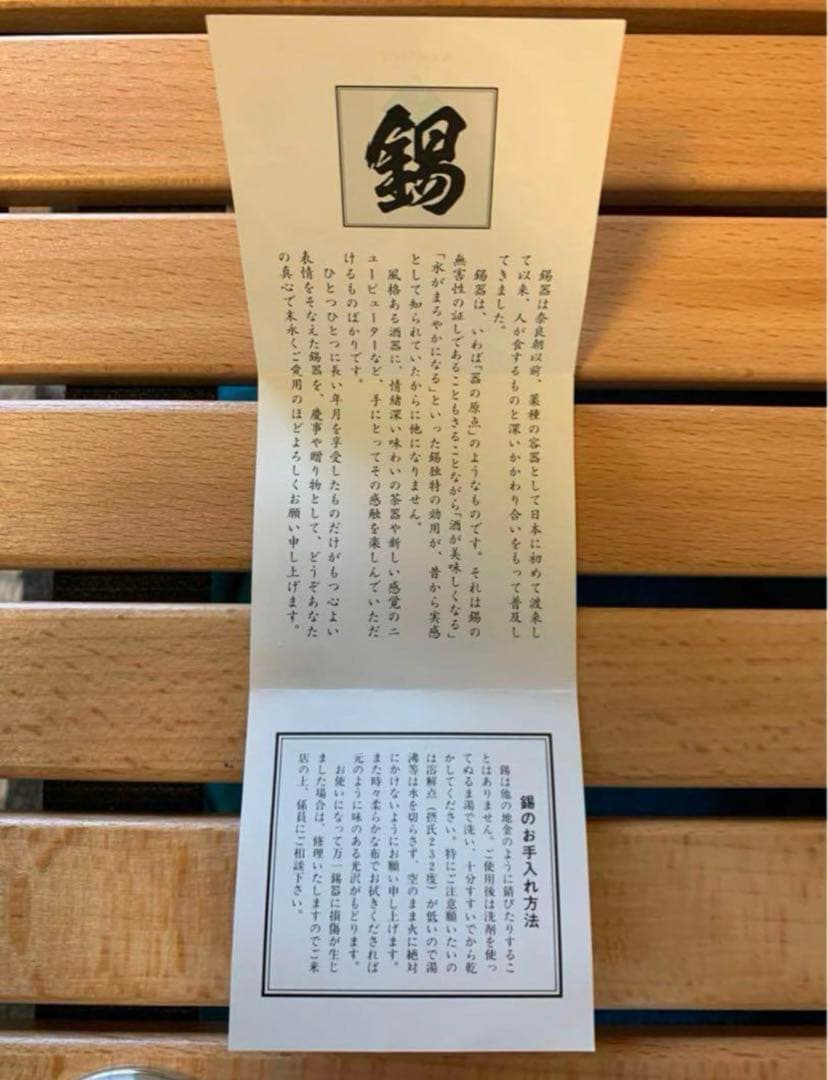 錫
　錫器は奈良朝以前、薬種の容器として日本に初めて渡来し
て以来、人が食するものと深いかかわり合いをもって普及し
てきました。
　錫器は、いわば「器の原点」のようなものです。それは錫の
無害性の証しであることもさることながら「酒が美味しくなる」
「水がまろやかになる」といった錫独特の効用が、昔から実感
として知られていたからに他になりません。
　風格ある酒器に、情緒深い味わいの茶器や新しい感覚のニ
ューピューターなど、手にとってその感触を楽しんでいただ
けるものばかりです。
　ひとつひとつに長い年月を享受したものだけがもつ心よい
表情をそなえた錫器を、慶事や贈り物として、どうぞあなた
の真心で末永くご愛用のほどよろしくお願い申し上げます。
錫のお手入れ方法
　錫は他の地金のように錆びたりするこ
とはありません。ご使用後は洗剤を使っ
てぬるま湯で洗い、十分すすいでから乾
かしてください。特にご注意願いたいの
は溶解点（摂氏232度）が低いので湯
沸等は水を切らさず、空のまま火に絶対
にかけないようにお願い申し上げます。
また時々柔らかな布でお拭きくだされば
元のように味のある光沢がもどります。
　お使いになって万一錫器に損傷が生じ
ました場合は、修理いたしますのでご来
店の上、係員にご相談下さい。